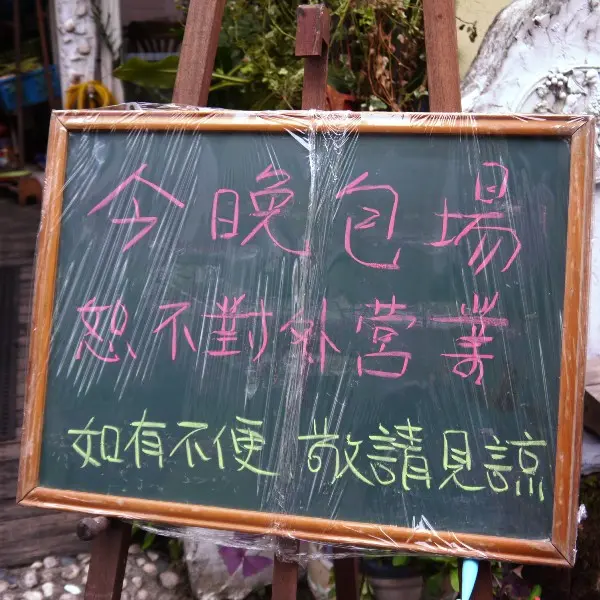 今晚包場
恕不對外營業
如有不便 敬請見諒